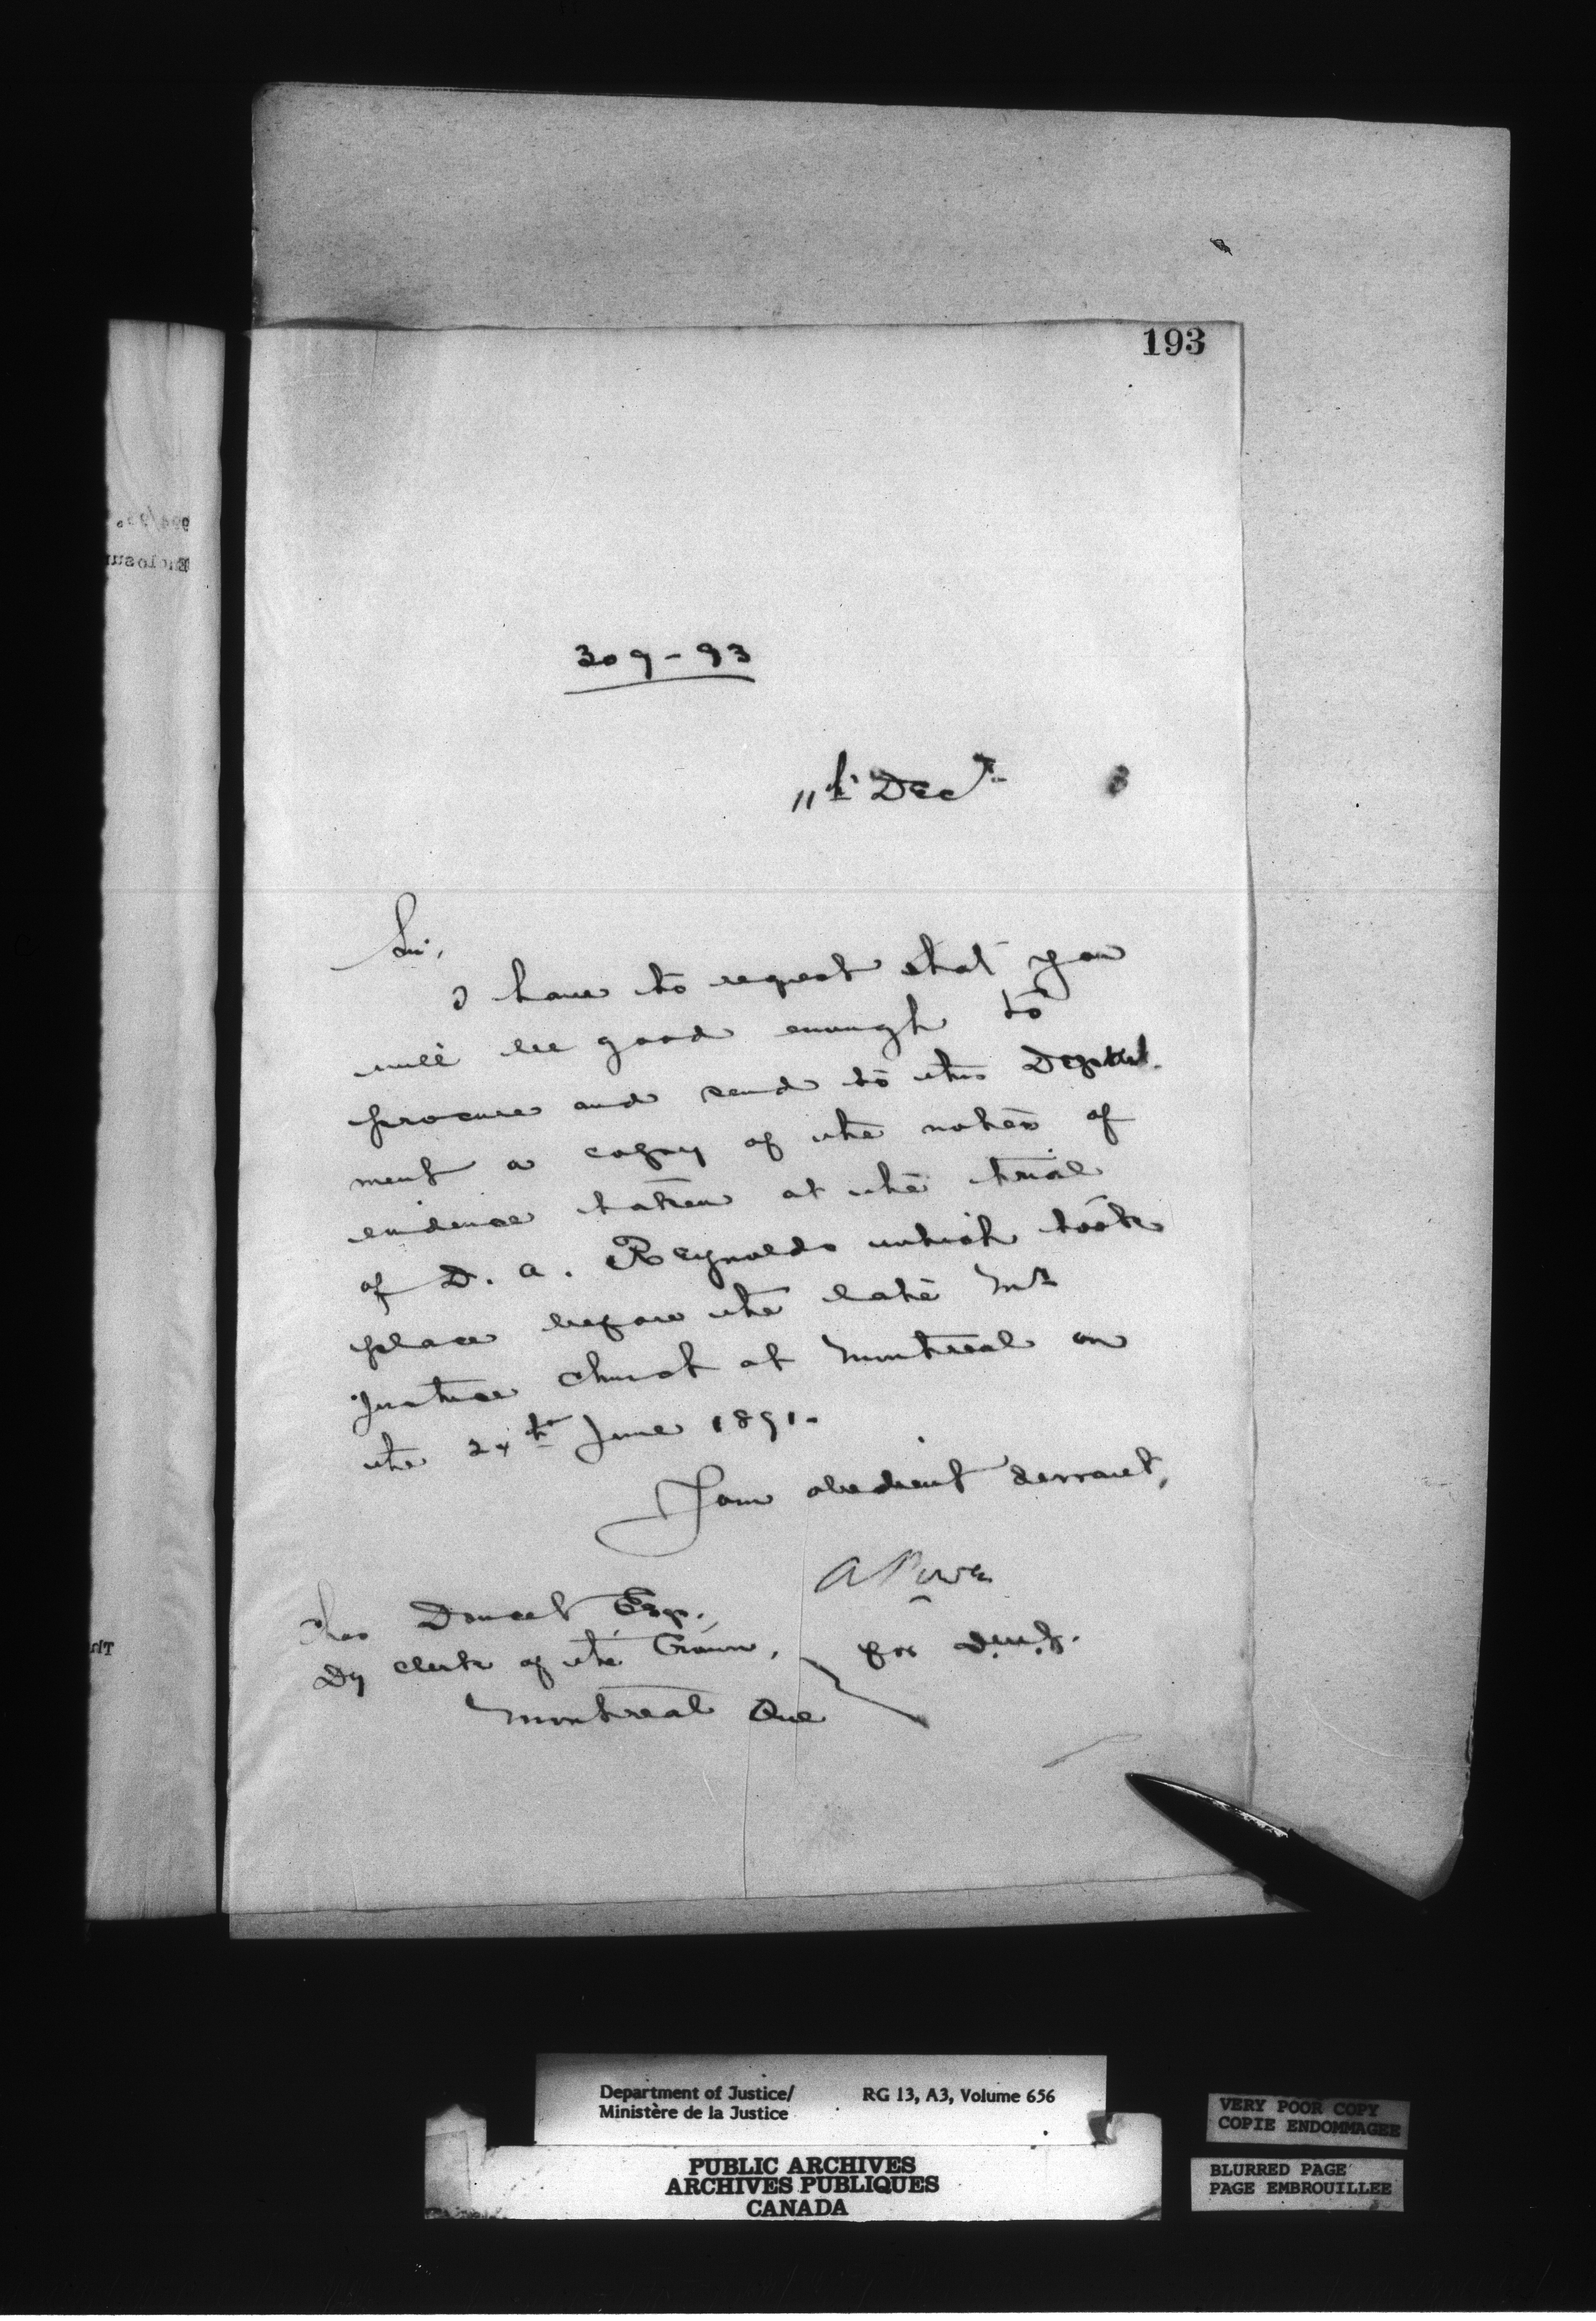 193
309-93
11th Decr 3
Sir,
I have to request that you
will be good enough to
procure and send to this Depart-
ment a copy of the notes of
evidence taken at the trial
of D. A. Reynolds which took
place before the late Mr
Justice Church at Montreal on
the 24th June 1891.
I am obedient servant,
A Power
for D.M.J.
Chas Doucet Esq.,
Dy Clerk of the Crown,
Montreal Que
Department of Justice/ RG 13, A3, Volume 656
Ministère de la Justice
PUBLIC ARCHIVES
ARCHIVES PUBLIQUES
CANADA
VERY POOR COPY
COPIE ENDOMMAGEE
BLURRED PAGE
PAGE EMBROUILLEE